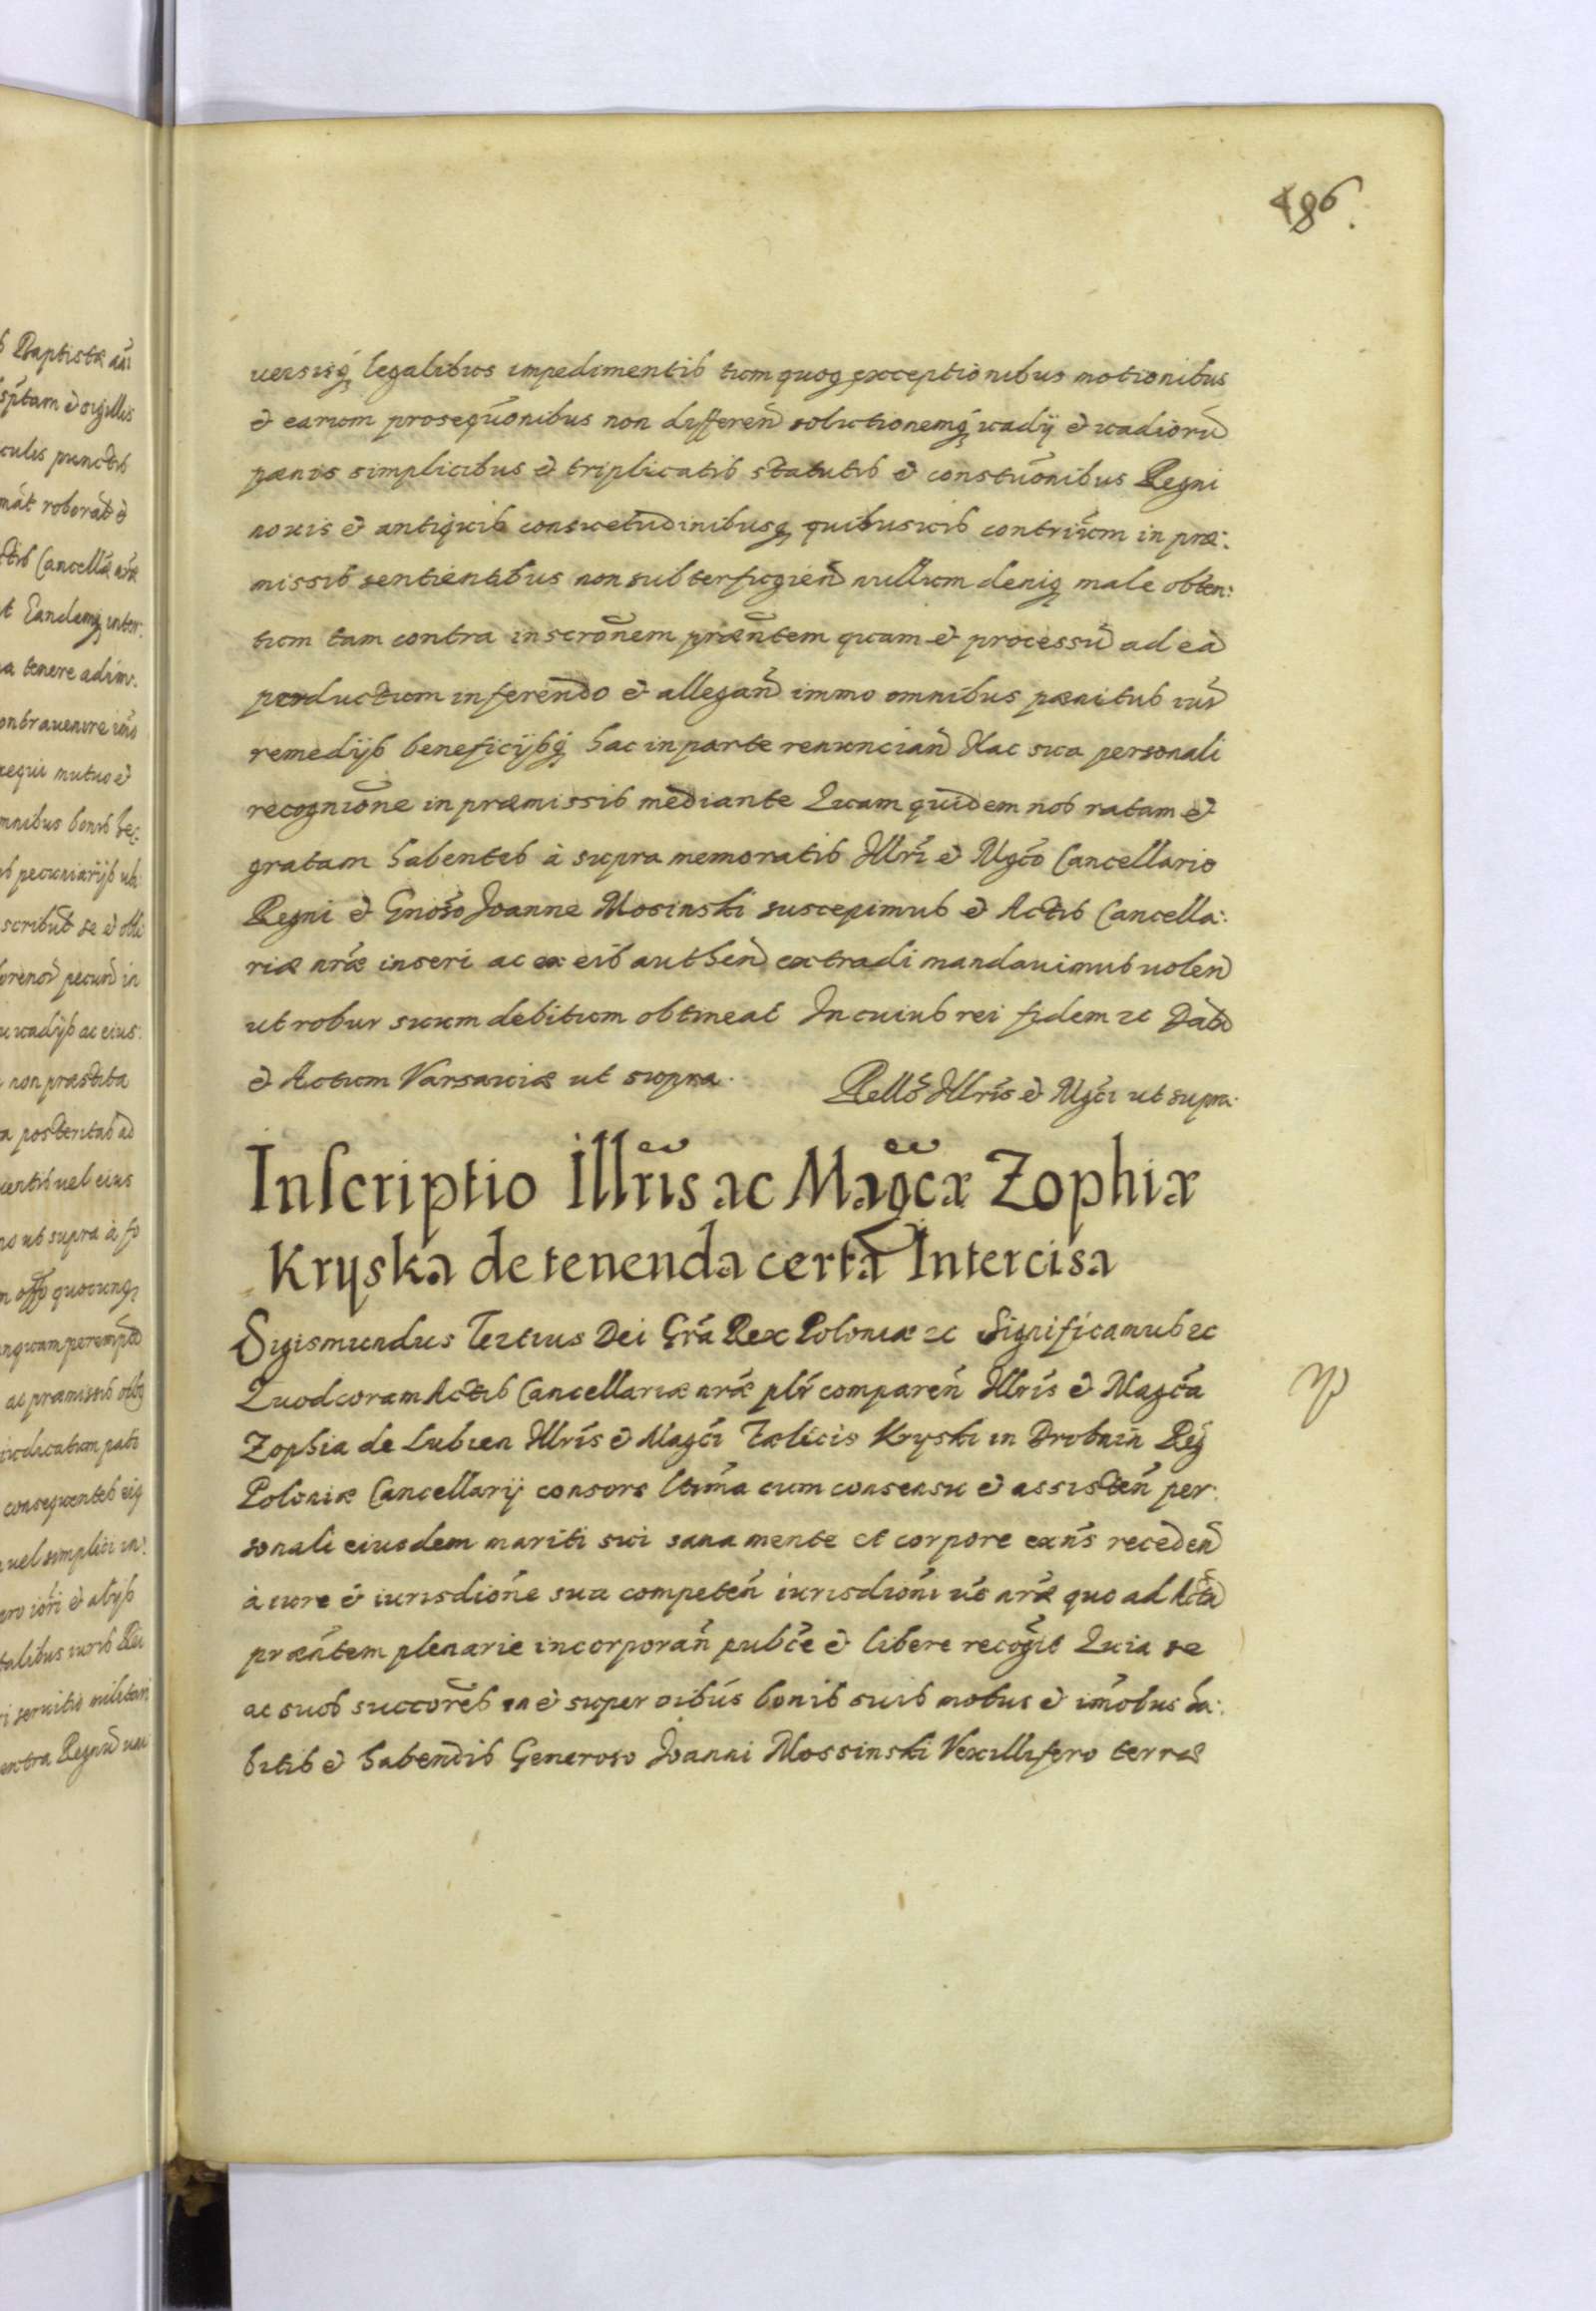 486.
uersisq legalibus impedimentis tum quoq exceptionibus motionibus
et earum prosequõnibus non differen solutionemq uadij et uadiorũ
pænis simplicibus et triplicatis statutis et constũonibus Regni
nouis et antiquis consuetudinibusq quibusuis contriũm in præ:
missis sentientibus non subterfugien nullum deniq male obten:
tum tam contra inscrõnem præñtem quam et processũ ad eã
productum inferendo et allegañ immo omnibus pænitus iur
remedijs beneficijsq hac in parte renuncian Hac sua personali
recognitione in præmissis mediante Quam quidem nos ratam et
gratam habentes à supra memoratis Illri et Mgco Cancellario
Regni et Gnoso Joanne Mosinski suscepimus et Actis Cancella:
riæ nræ inseri ac ex eis authen extradi mandauimus uolen
ut robur suum debitum obtineat In cuius rei fidem etc Datũ
et Actum Varsauiæ ut supra. Rello Illris et Mgci ut supra.
Inscriptio Illris ac Magcæ Zophiæ
Kryska de tenenda certa Intercisa
Sigismundus Tertius Dei Gra Rex Poloniæ etc Significamus etc
Quod coram Actis Cancellariæ nræ plr comparen Illris et Magca
Zophia de Lubien Illris et Magci Fælicis Kryski in Drobnin Reg
Poloniæ Cancellarij consors ltima cum consensu et assisten per:
sonali eiusdem mariti sui sana mente et corpore exñs receden
à iure et iurisdione sua competen iurisdioni uo nræ quo ad Acta
præñtem plenarie incorporan publce et libere recogit Quia se
ac suos succores in et super oibus bonis suis mobus et imobus ha:
bitis et habendis Generoso Joanni Mossinski Vexillifero terræ